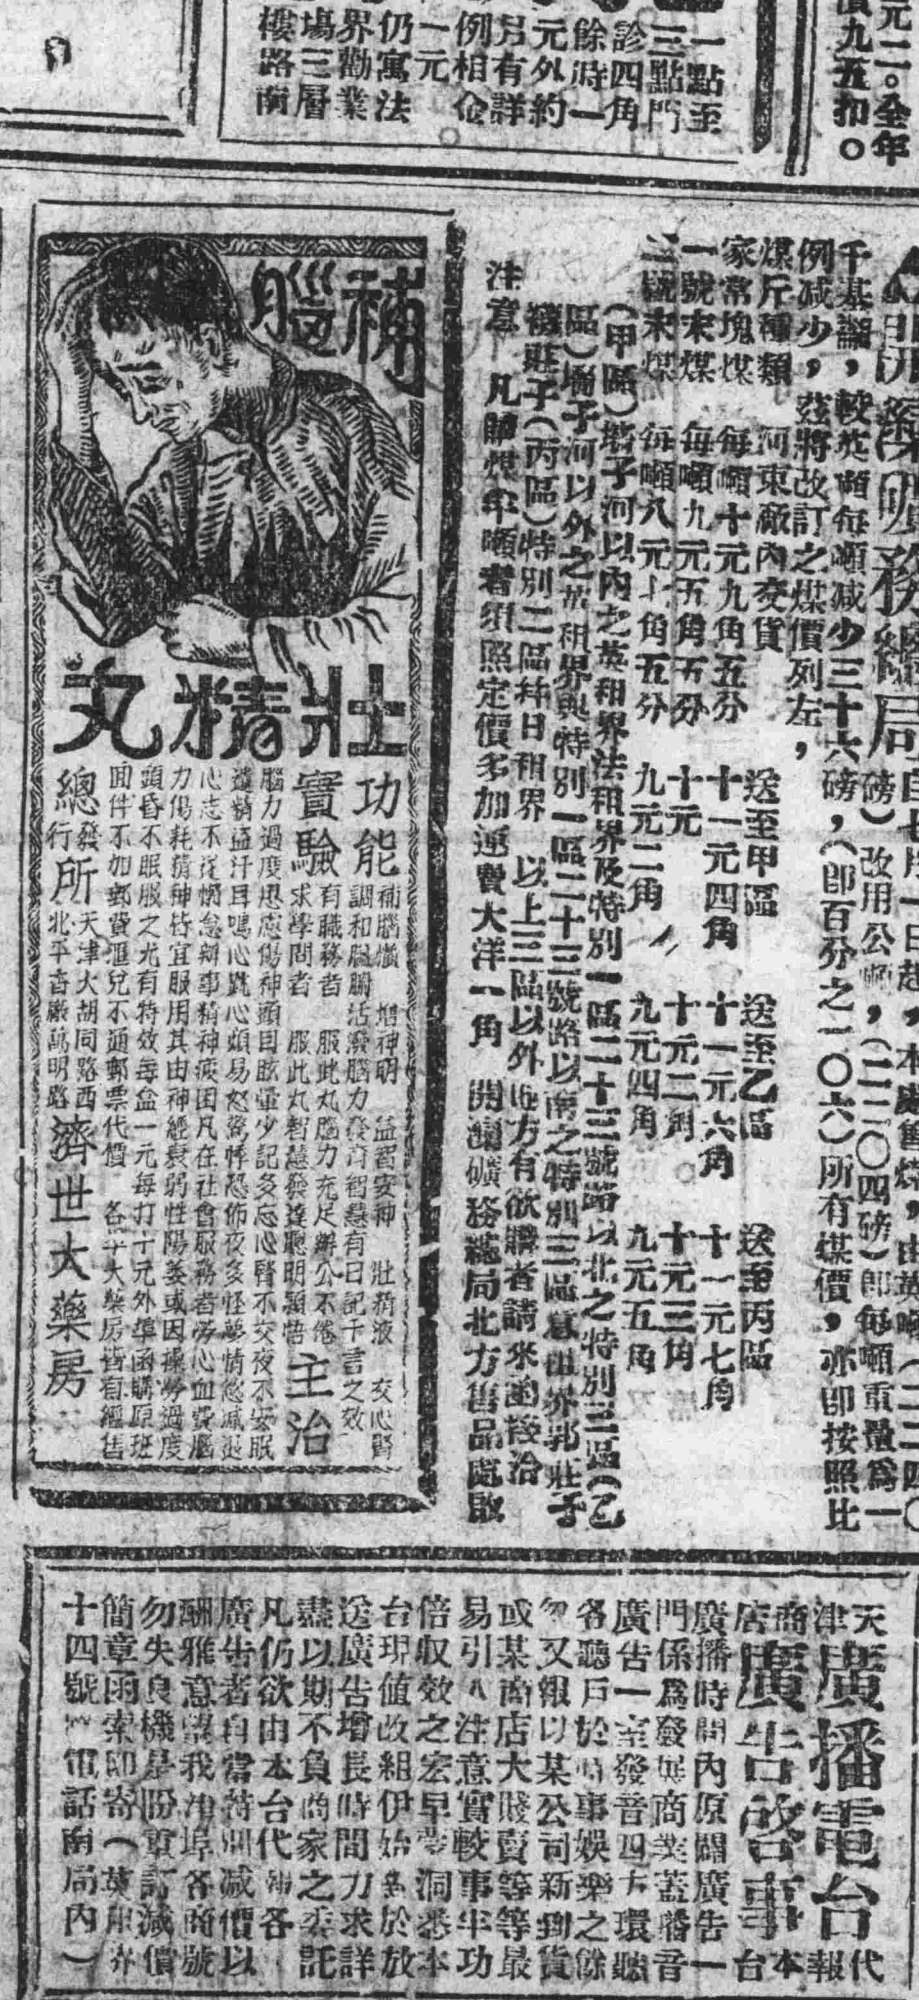 元二。全年
價九五扣。
一點至
三點門
診四角
餘時一
元外約
另有詳
例相金
一元
仍寓法
界勸業
場三層
樓路南
開灤礦務總局
自七月一日起，本處售煤，由英噸（二二四〇
磅）改用公噸，（二二〇四磅）即每噸重量爲一
千基羅，較英噸每噸减少三十六磅，（即百分之一〇六）所有煤價，亦即按照比
例减少，茲將改訂之煤價列左，
煤斤種類　河東廠內交貨　送至甲區　送至乙區　送至丙區
家常塊煤　每噸十元九角五分　十一元四角　十一元六角　十一元七角
一號末煤　每噸九元五角五分　十元　十元二角　十元三角
二號末煤　每噸八元七角五分　九元二角　九元四角　九元五角
（甲區）墻子河以內之英租界法租界及特別一區二十三號路以北之特別三區（乙
區）墻子河以外之英租界與特別一區二十三號路以南之特別三區意租界郭莊子
莊子（丙區）特別二區和日租界　以上三區以外地方有欲購者請來函接洽
注意　凡節煤半噸者須照定價多加運費大洋一角　開灤礦務總局北方售品處啟
補腦
壯精丸
功能
補腦懺　增神明　益智安神　壯精液　交心腎
調和臟腑活潑腦力發育智慧有日記千言之效
實驗
有職務者　服此丸腦力充足辦公不倦
求學問者　服此丸智慧發達聰明穎悟
主治
腦力過度思慮傷神頭目眩暈少記多忘心腎不交夜不安眠
遺精盜汗耳鳴心跳心煩易怒驚悸恐怖夜多怪夢情慾减退
心志不定懶怠辦事精神疲困凡在社會服務者勞心血費腦
力傷耗精神皆宜服用其由神經衰弱性陽萎或因操勞過度
頭昏不眠服之尤有特效每盒一元每打十元外埠函購原班
回件不加郵費滙兌不通郵票代價　各埠大藥房皆有經售
總發行所
天津大胡同路西
北平香廠萬明路
濟世大藥房
天津廣播電台代報
商店廣告啓事本台
廣播時間內原闢廣告一
門係爲發展商業蓋播音
廣告一室發音四方環聽
各聽戶於時事娛樂之餘
忽又報以某公司新到貨
或某商店大賤賣等等最
易引人注意實較事半功
倍收效之宏早蒙洞悉本
台現値改組伊始爲於放
送廣告增長時間力求詳
盡以期不負商家之委託
凡仍欲由本台代報各
廣告者自當特別减價以
酬雅意望我津埠各商號
勿失良機是盼重訂減價
簡章函索即寄（英租界
十四號路電話南局內）